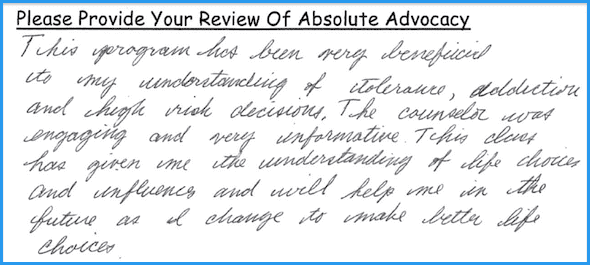 Please Provide Your Review Of Absolute Advocacy
This program has been very beneficial
to my understanding of tolerance, addiction
and high risk decisions. The counselor was
engaging and very informative. This class
has given me the understanding of life choices
and influences and will help me in the
future as I change to make better life
choices.